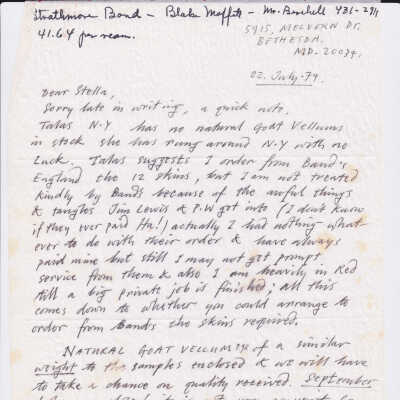 Strathmore Bond — Blake Moffitt — Mr. Birchell 436-2911
41.64 per ream.
5915, MELVERN Dr.
BETHESDA.
MD-20034.
02. July-79.
Dear Stella,
Sorry late in writing, a quick note.
Talas N-Y has no natural Goat Vellums
in stock she has rung around N.Y with no
Luck. Talas suggests I order from Band's
England the 12 skins, but I am not treated
kindly by Bands because of the awful things
& tangles Jim Lewis & P.W got into (I don't know
if they ever paid Him!) actually I had nothing what-
ever to do with their order & have always
paid mine but still I may not get prompt
service from them & also I am heavily in Red
till a big private job is finished; all this
comes down to whether you could arrange to
order from Bands the skins required.
NATURAL GOAT VELLUM of a similar
weight to the samples enclosed & we will have
to take a chance on quality received. September